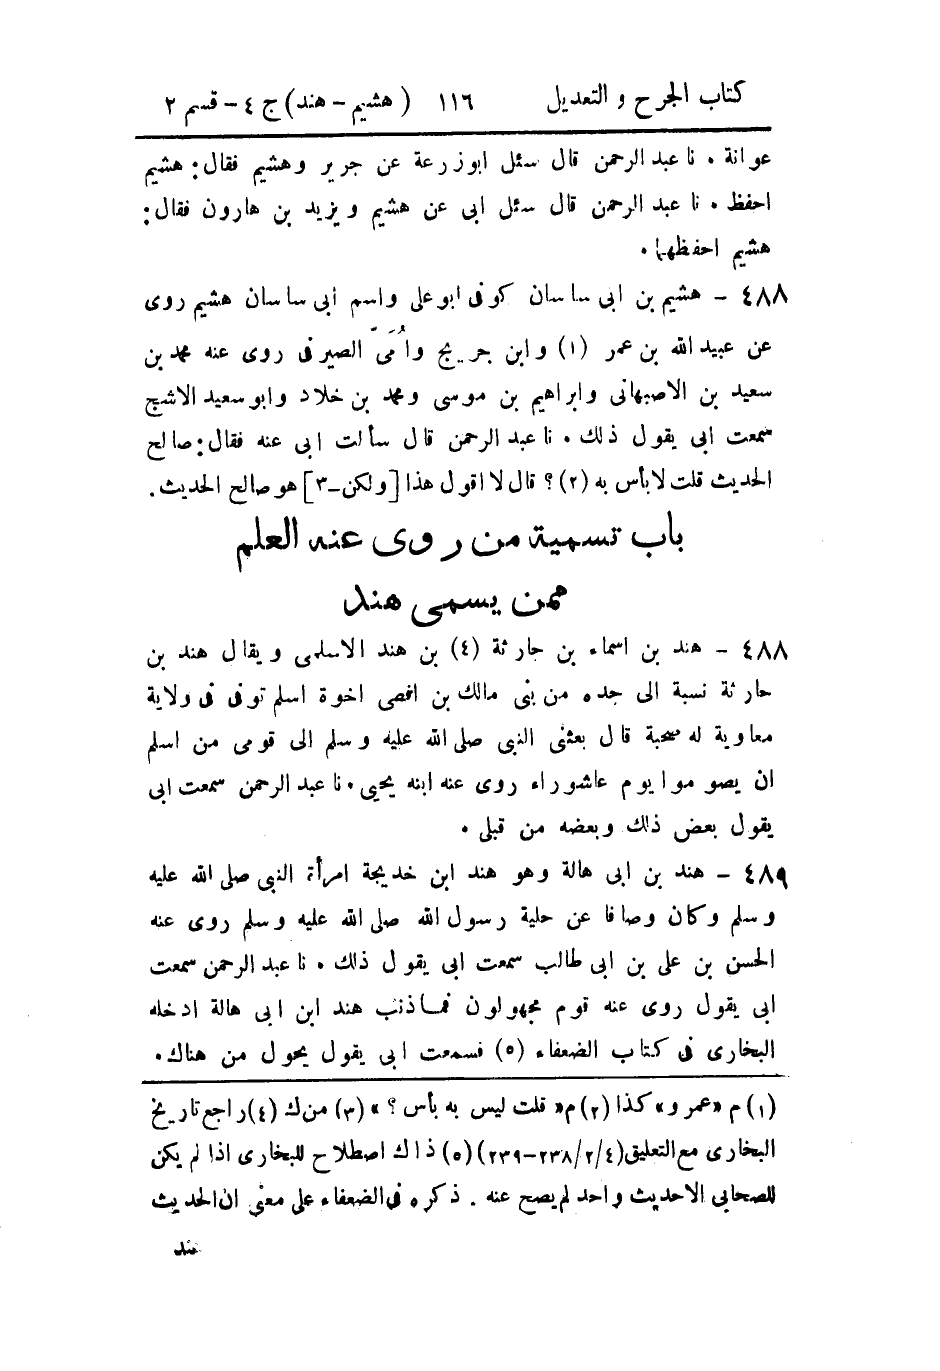 كتاب الجرح و التعديل ١١٦ (هشيم - هند) ج ٤ - قسم ٢
عوانة . نا عبد الرحمن قال سئل ابو زرعة عن جرير وهشيم فقال: هشيم
احفظ . نا عبد الرحمن قال سئل ابى عن هشيم ويزيد بن هارون فقال:
هشيم احفظهما .
٤٨٨ - هشيم بن ابى ساسان كوفى ابو على واسم ابى ساسان هشيم روى
عن عبيد الله بن عمر (١) وابن جريج واُمَىّ الصيرفى روى عنه محمد بن
سعيد بن الاصبهانى وابراهيم بن موسى ومحمد بن خلاد وابو سعيد الاشج
سمعت ابى يقول ذلك . نا عبد الرحمن قال سألت ابى عنه فقال: صالح
الحديث قلت لا بأس به (٢)؟ قال لا اقول هذا [ولكن-٣] هو صالح الحديث.
باب تسمية من روى عنه العلم
ممن يسمى هند
٤٨٨ - هند بن اسماء بن حارثة (٤) بن هند الاسلمى ويقال هند بن
حارثة نسبة الى جده من بنى مالك بن افصى اخوة اسلم توفى فى ولاية
معاوية له صحبة قال بعثنى النبى صلى الله عليه وسلم الى قومى من اسلم
ان يصوموا يوم عاشوراء روى عنه ابنه يحيى . نا عبد الرحمن سمعت ابى
يقول بعض ذلك وبعضه من قبلى .
٤٨٩ - هند بن ابى هالة وهو هند ابن خديجة امرأة النبى صلى الله عليه
وسلم وكان وصافا عن حلية رسول الله صلى الله عليه وسلم روى عنه
الحسن بن على بن ابى طالب سمعت ابى يقول ذلك . نا عبد الرحمن سمعت
ابى يقول روى عنه قوم مجهولون فما ذنب هند ابن ابى هالة ادخله
البخارى فى كتاب الضعفاء (٥) فسمعت ابى يقول يحول من هناك.
(١) م «عمرو» كذا (٢) م« قلت ليس به بأس ؟ » (٣) من ك (٤) راجع تاريخ
البخارى مع التعليق (٤/٢/٢٣٨-٢٣٩) (٥) ذاك اصطلاح للبخارى اذا لم يكن
للصحابى الا حديث واحد لم يصح عنه . ذكره فى الضعفاء على معنى ان الحديث